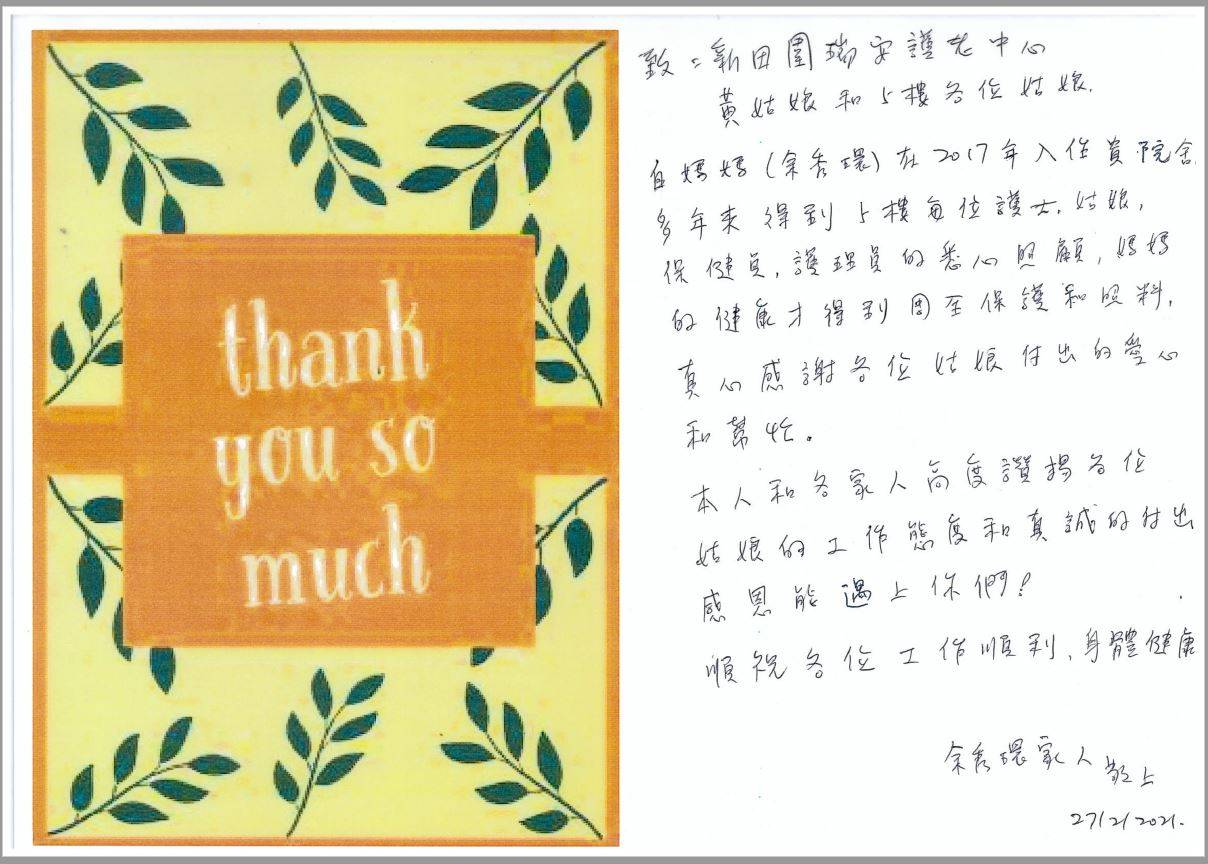 thank
you so
much
致：新田圍瑞安護老中心
黃姑娘和5樓各位姑娘.
自媽媽(余秀環)在2017年入住貴院舍
多年來得到5樓每位護士,姑娘,
保健員,護理員的悉心照顧,媽媽
的健康才得到周至保護和照料.
真心感謝各位姑娘付出的愛心
和幫忙。
本人和各家人高度讚揚各位
姑娘的工作態度和真誠的付出
感恩能遇上你們!
順祝各位工作順利,身體健康
余秀環家人敬上
27/2/2021.